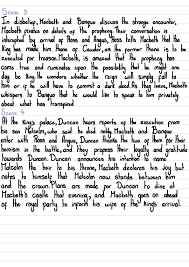 Scene 3
In disbelief, Macbeth and Banquo discuss the strange encounter,
Macbeth dwells on details of the prophecy. Their conversation is
interrupted by arrival of Ross and Angus, Ross tells Macbeth that the
King has made him Thane of Cawdor, as the former thane is to be
executed for treason. Macbeth, is amazed that the prophecy has
come true and ruminates upon the possibility that he might one
day be King. He wonders whether the reign will simply fall to
him or if he will have to commit a dark deed. As they leave, Macbeth
whispers to Banquo that he would like to speak to him privately
about what has transpired
Scene 4
At the King's palace, Duncan hears reports of the execution from
his son Malcolm, who said he died nobly. Macbeth and Banquo
enter with Ross and Angus, Duncan thanks the two of them for their
heroism in the battle, and they profess their loyalty and gratitude
towards Duncan. Duncan announces his intention to name
Malcolm the heir to his throne, Macbeth declares his joy but
notes to himself that Malcolm now stands between him
and the crown. Plans are made for Duncan to dine at
Macbeth's castle that evening, and Macbeth goes on ahead of
the royal party to inform his wife of the King's arrival.